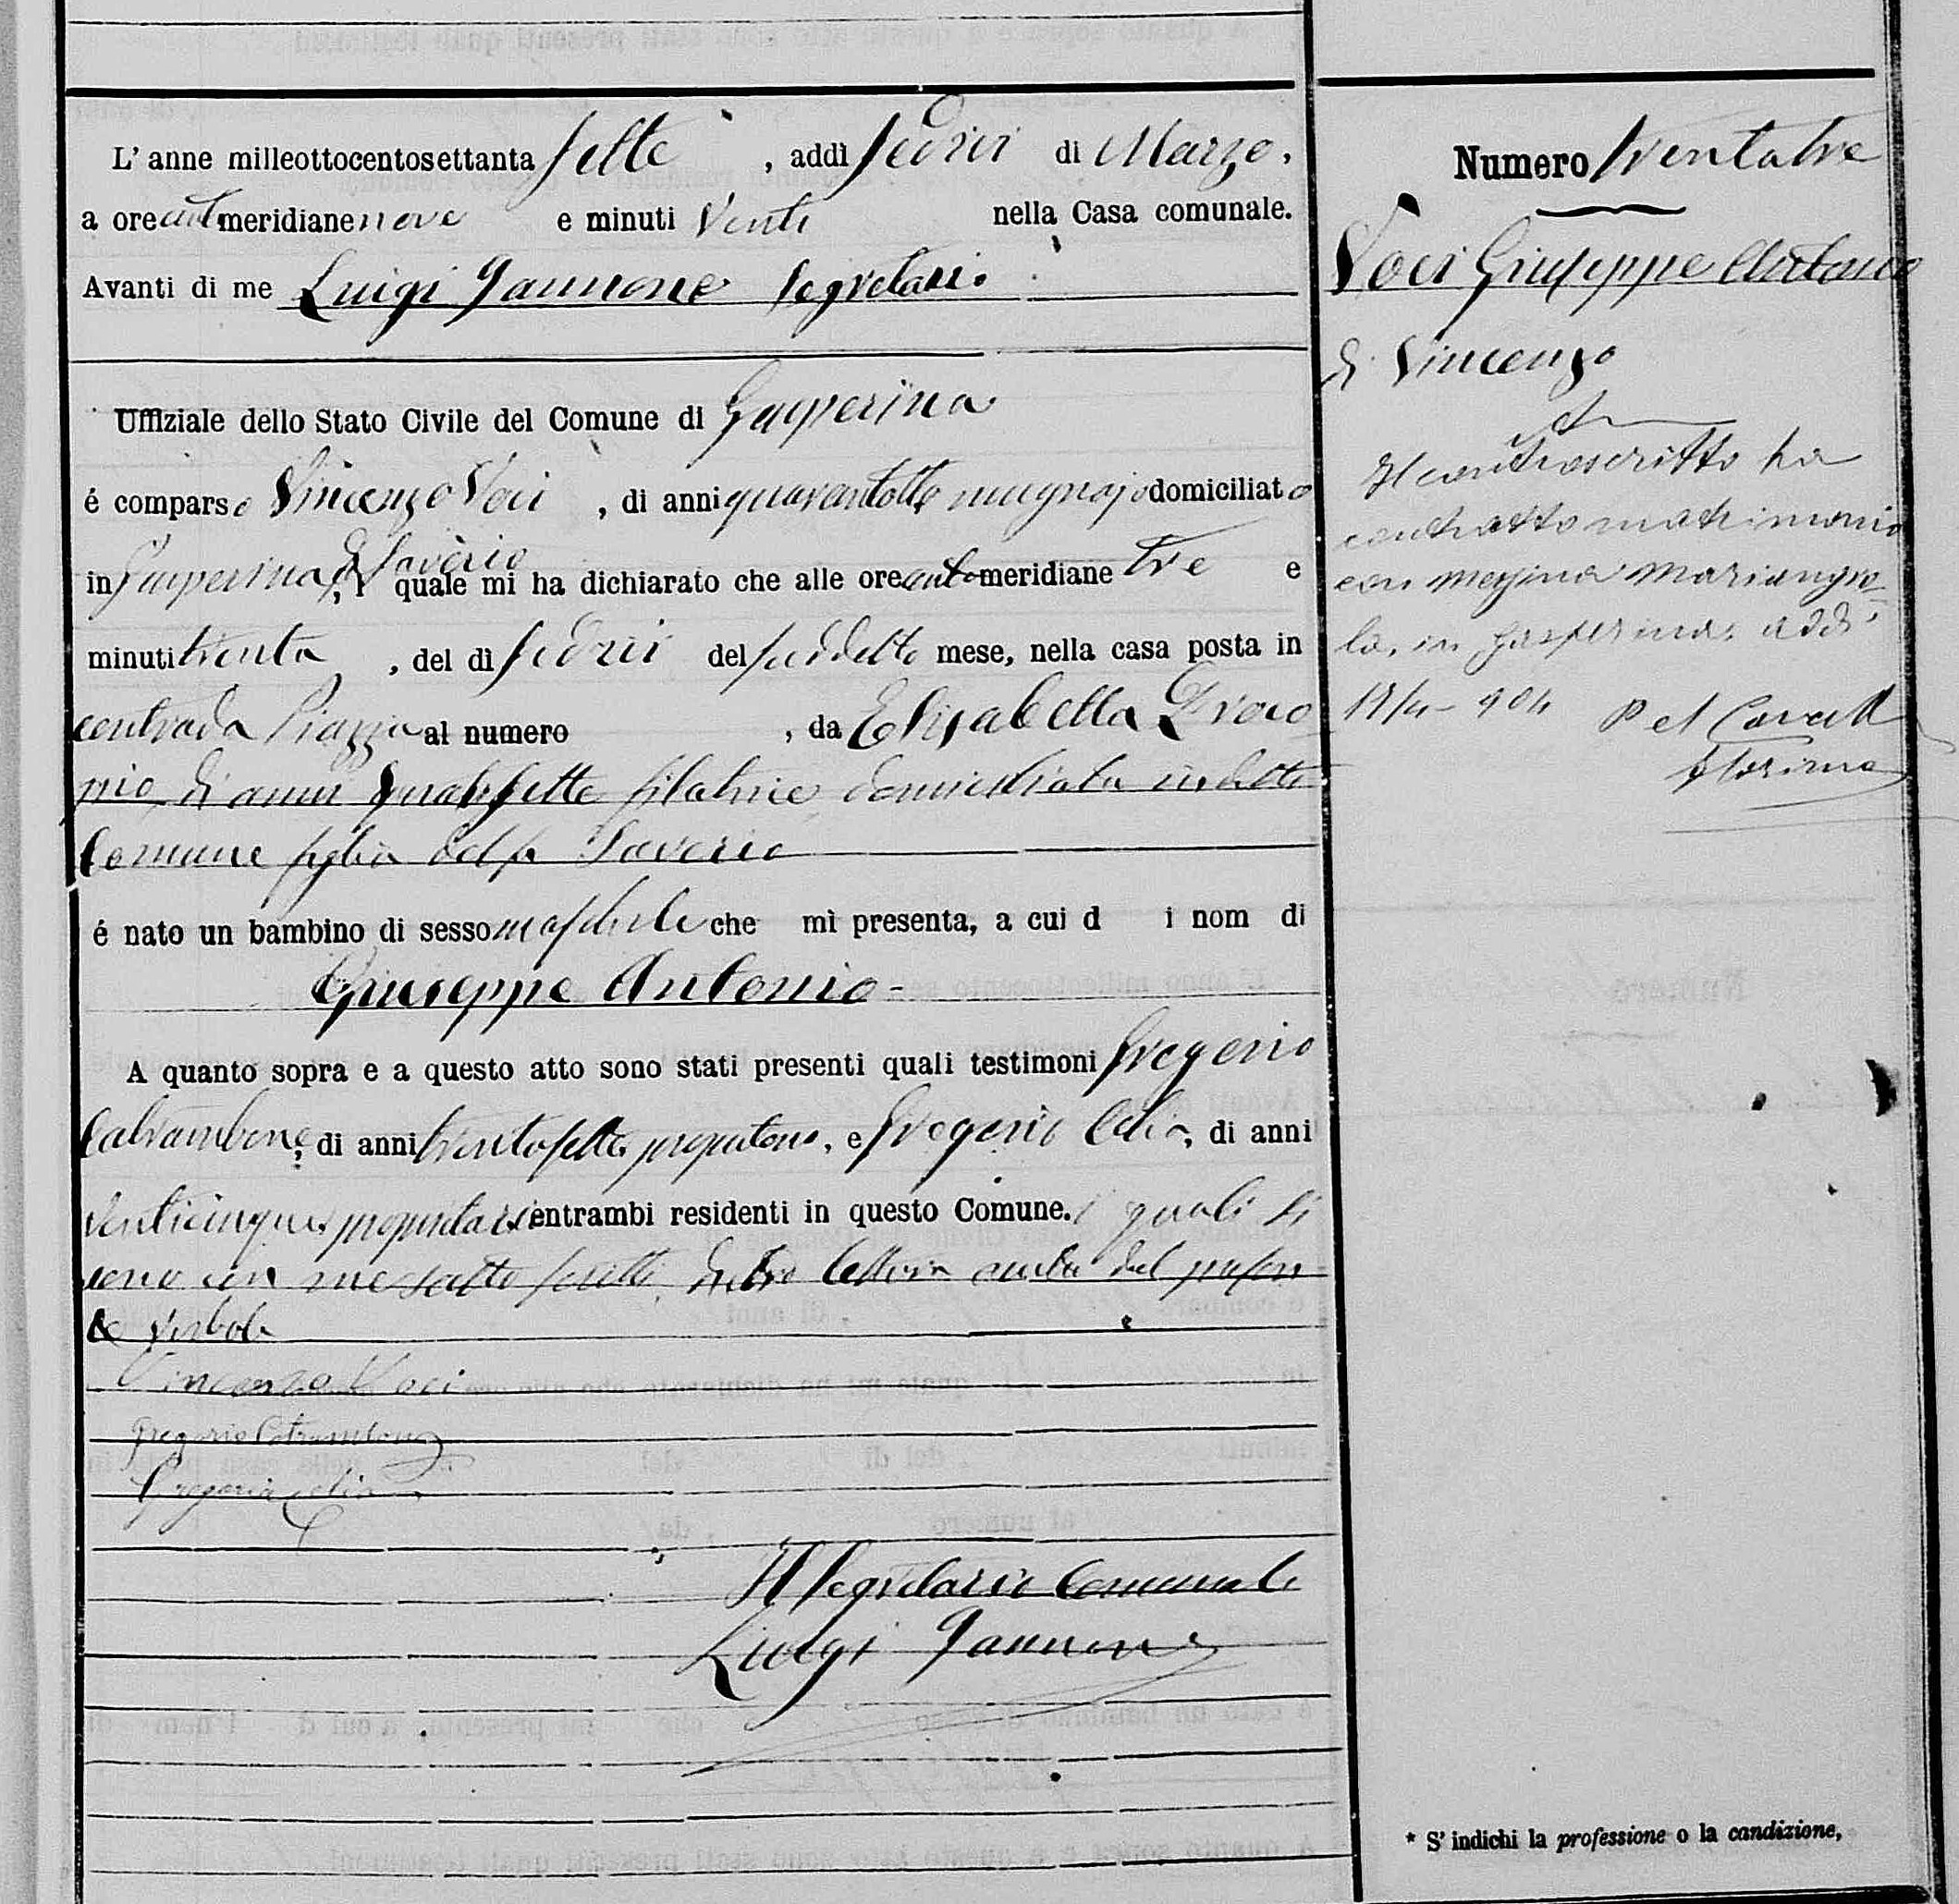 L' anne milleottocentosettanta sette, addì sedici di Marzo,
a ore antimeridiane nove e minuti Venti nella Casa comunale.
Avanti di me Luigi Jannone Segretario
Uffiziale dello Stato Civile del Comune di Gasperina
é comparso Vincenzo Voci, di anni quarantotto mugnajo domiciliato
in Gasperina, di Saverio quale mi ha dichiarato che alle ore antimeridiane tre e
minuti trenta, del dì sedici del suddetto mese, nella casa posta in
contrada Piazza al numero, da Elisabetta
di anni filatrice domiciliata in detto
Comune figlia del fu Saverio
é nato un bambino di sesso maschile che mi presenta, a cui d i nom di
Giuseppe Antonio
A quanto sopra e a questo atto sono stati presenti quali testimoni Gregorio
Catrambone, di anni trentasette proprietario, e Gregorio Celia, di anni
venticinque, proprietario entrambi residenti in questo Comune. i quali si
sono con me sotto scritti dietro lettura del presen
te verbale
Vincenzo Voci
Gregorio Catrambone
Gregorio Celia
Il Segretario Comunale
Luigi Jannone
Numero trentatre
Voci Giuseppe Antonio
di Vincenzo
Il controscritto ha
contratto matrimonio
con Messina Mariangio
la, in Gasperina, addì
* S' indichi la professione o la condizione,